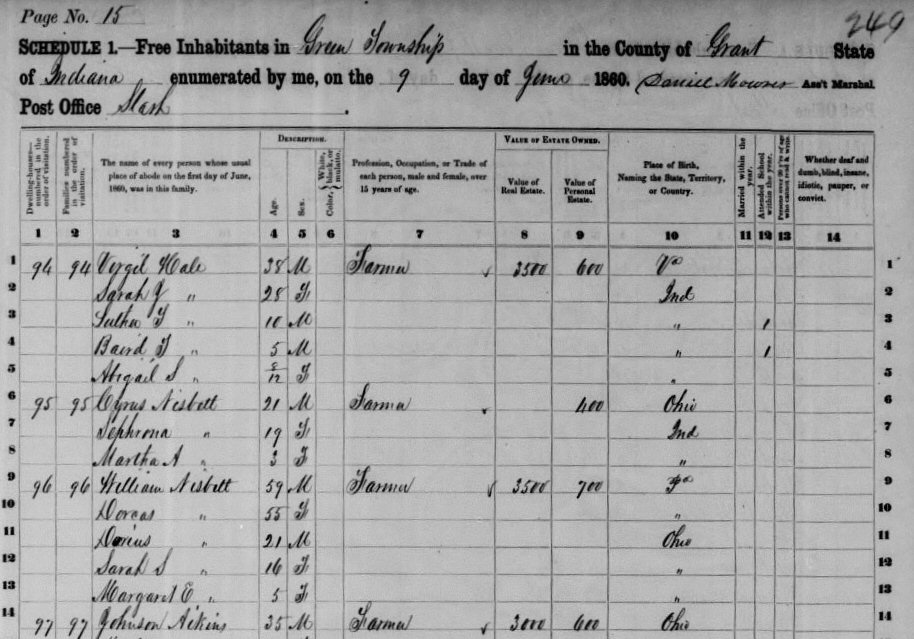 Page No. 15
249
SCHEDULE 1.—Free Inhabitants in Green Township in the County of Grant State
of Indiana enumerated by me, on the 9 day of June 1860. Daniel Mowrer Ass't Marshal
Post Office Slash.
Dwelling-houses—numbered in the order of visitation.
Families numbered in the order of visitation.
The name of every person whose usual place of abode on the first day of June, 1860, was in this family.
DESCRIPTION.
Age.
Sex.
Color, White, black, or mulatto.
Profession, Occupation, or Trade of each person, male and female, over 15 years of age.
VALUE OF ESTATE OWNED.
Value of Real Estate.
Value of Personal Estate.
Place of Birth, Naming the State, Territory, or Country.
Married within the year.
Attended School within the year.
Persons over 20 y'rs of age who cannot read & write.
Whether deaf and dumb, blind, insane, idiotic, pauper, or convict.
1 2 3 4 5 6 7 8 9 10 11 12 13 14
1 94 94 Vergil Hale 38 M Farmer 3500 600 Va 1
2 Sarah J " 28 F Ind 2
3 Luther F " 10 M " 1 3
4 Baird F " 5 M " 1 4
5 Abigail S " 8/12 F " 5
6 95 95 Cyrus Nisbett 21 M Farmer 400 Ohio 6
7 Sephrona " 19 F Ind 7
8 Martha A " 3 F " 8
9 96 96 William Nisbett 59 M Farmer 3500 700 Pa 9
10 Dorcas " 55 F " 10
11 Darius " 21 M Ohio 11
12 Sarah S " 16 F " 12
13 Margaret E " 5 F " 13
14 97 97 Johnson Aikins 35 M Farmer 3000 600 Ohio 14